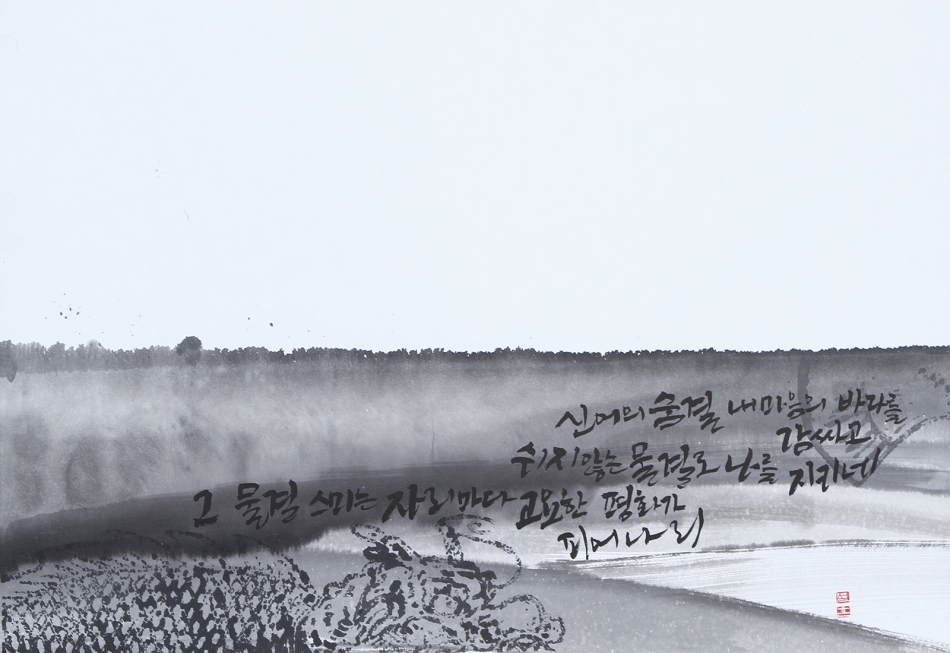 신어의 숨결 내 마음의 바다를
감싸고
쉬지 않는 물결로 나를 지키네
그 물결 스미는 자리마다 고요한 평화가
피어나리